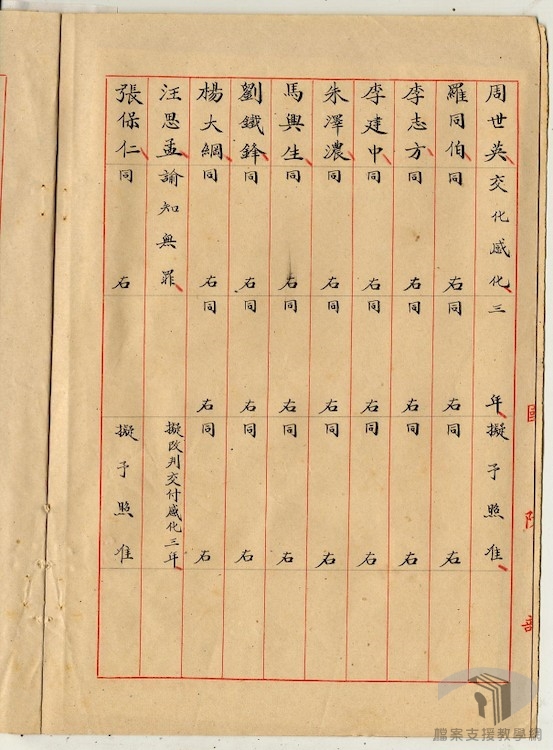 周世英 交化感化 三年 擬予照准
羅同伯 同右 同右 同右
李志方 同右 同右 同右
李建中 同右 同右 同右
朱澤濃 同右 同右 同右
馬興生 同右 同右 同右
劉鐵鋒 同右 同右 同右
楊大綱 同右 同右 同右
汪思孟 諭知無罪 擬改判交付感化三年
張保仁 同右 擬予照准
國防部
檔案支援教學網